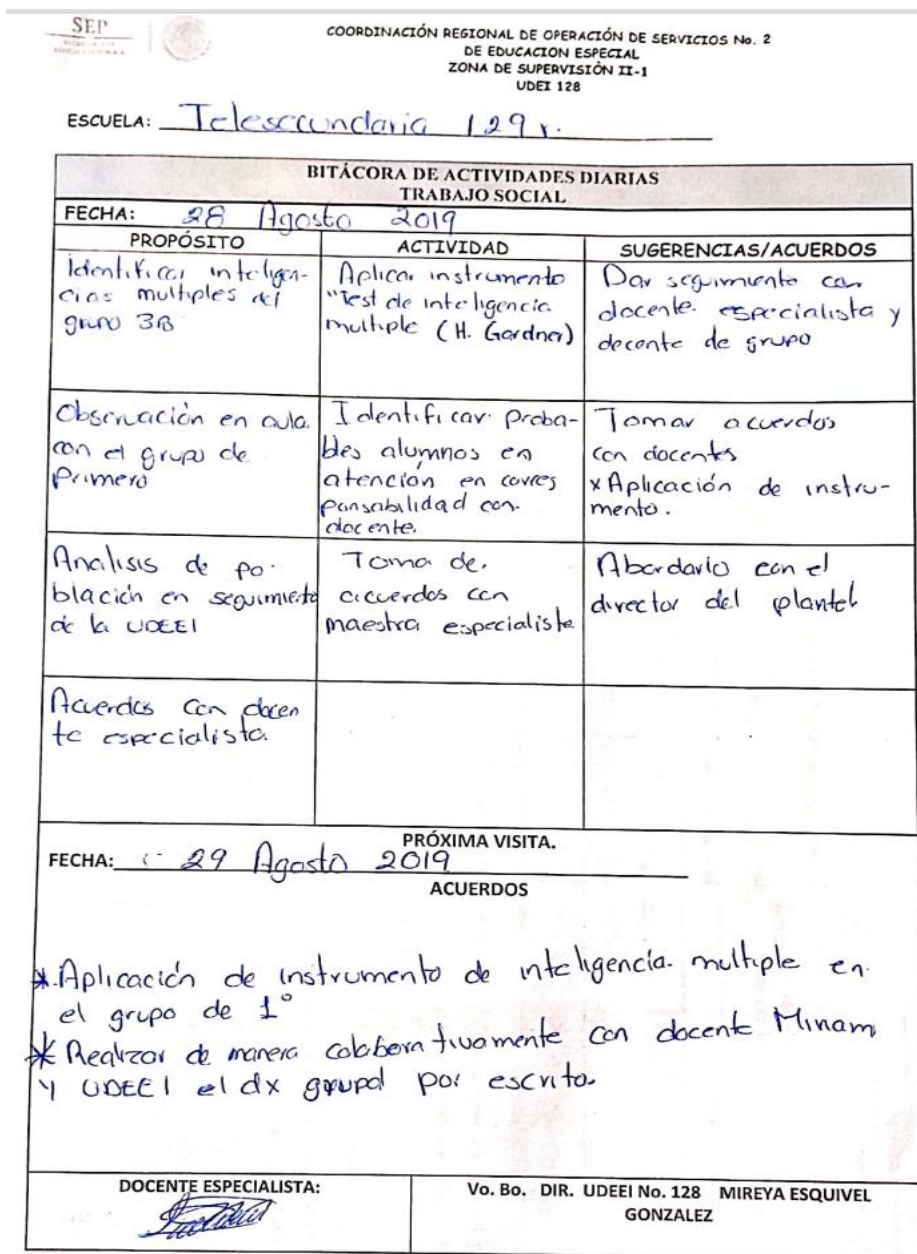 SEP
COORDINACIÓN REGIONAL DE OPERACIÓN DE SERVICIOS No. 2
DE EDUCACION ESPECIAL
ZONA DE SUPERVISIÓN II-1
UDEI 128
ESCUELA: Telesecundaria 129 v.
BITÁCORA DE ACTIVIDADES DIARIAS
TRABAJO SOCIAL
FECHA: 28 Agosto 2019
PROPÓSITO
ACTIVIDAD
SUGERENCIAS/ACUERDOS
Identificar inteligen-
cias multiples del
grupo 3B
Aplicar instrumento
"Test de inteligencia
multiple (H. Gardner)
Dar seguimiento con
docente especialista y
docente de grupo
Observación en aula
con el grupo de
Primero
Identificar proba-
bles alumnos en
atención en corres
ponsabilidad con
docente.
Tomar acuerdos
con docentes
x Aplicación de instru-
mento.
Analisis de po-
blación en seguimiento
de la UDEEI
Toma de
acuerdos con
maestra especialista
Abordarlo con el
director del plantel
Acuerdos con docen
te especialista.
PRÓXIMA VISITA.
FECHA: 29 Agosto 2019
ACUERDOS
* Aplicación de instrumento de inteligencia multiple en
el grupo de 1°
* Realizar de manera colaborativamente con docente Miriam
y UDEEI el dx grupal por escrito.
DOCENTE ESPECIALISTA:
Vo. Bo. DIR. UDEEI No. 128 MIREYA ESQUIVEL
GONZALEZ